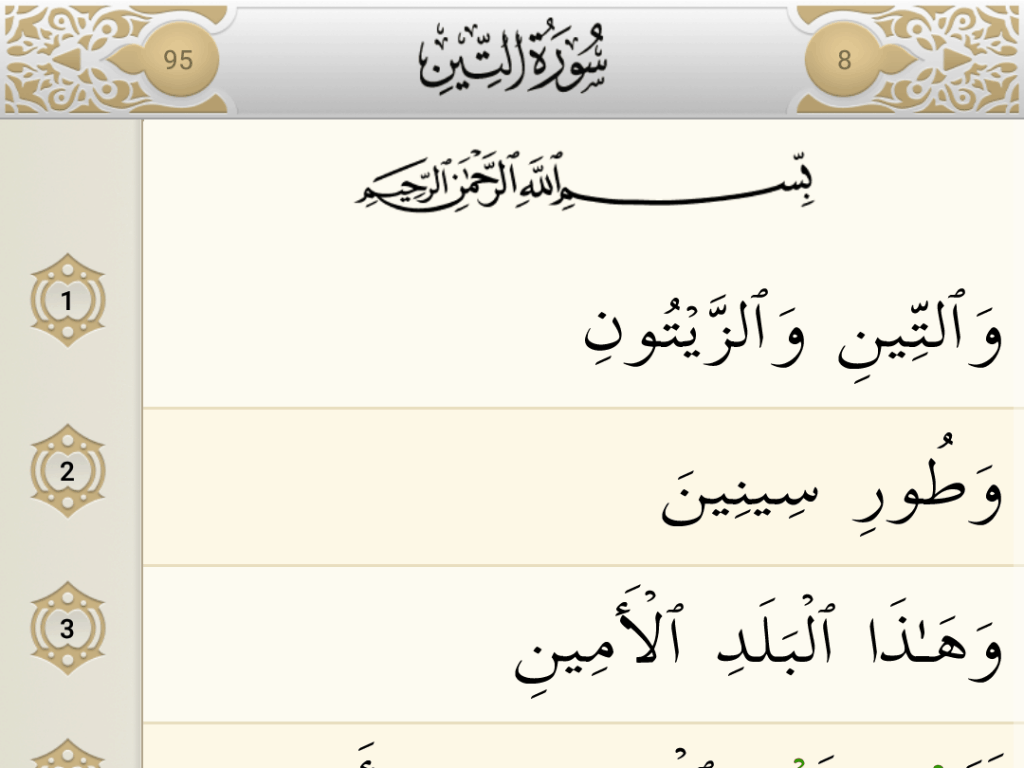 95
سُورَةُ التِّينِ
8
بِسْمِ ٱللَّهِ ٱلرَّحْمَٰنِ ٱلرَّحِيمِ
1
وَٱلتِّينِ وَٱلزَّيْتُونِ
2
وَطُورِ سِينِينَ
3
وَهَـٰذَا ٱلْبَلَدِ ٱلْأَمِينِ